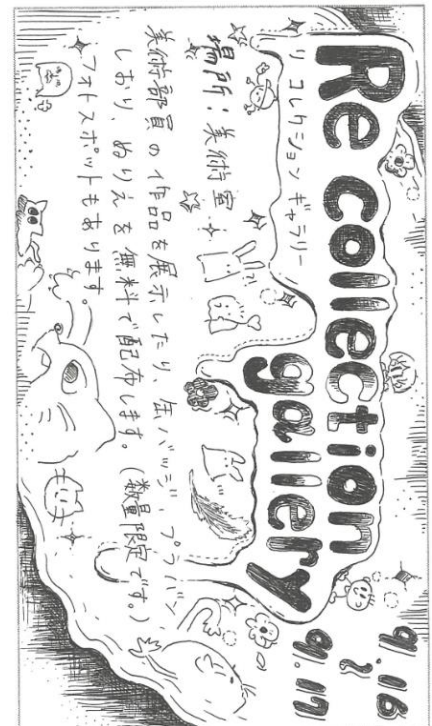 Re collection
gallery
リ コレクション ギャラリー
9.16
〜
9.17
場所：美術室
美術部員の作品を展示したり、缶バッジ、プラバン、
しおり、ぬりえを無料で配布します。(数量限定です。)
フォトスポットもあります。